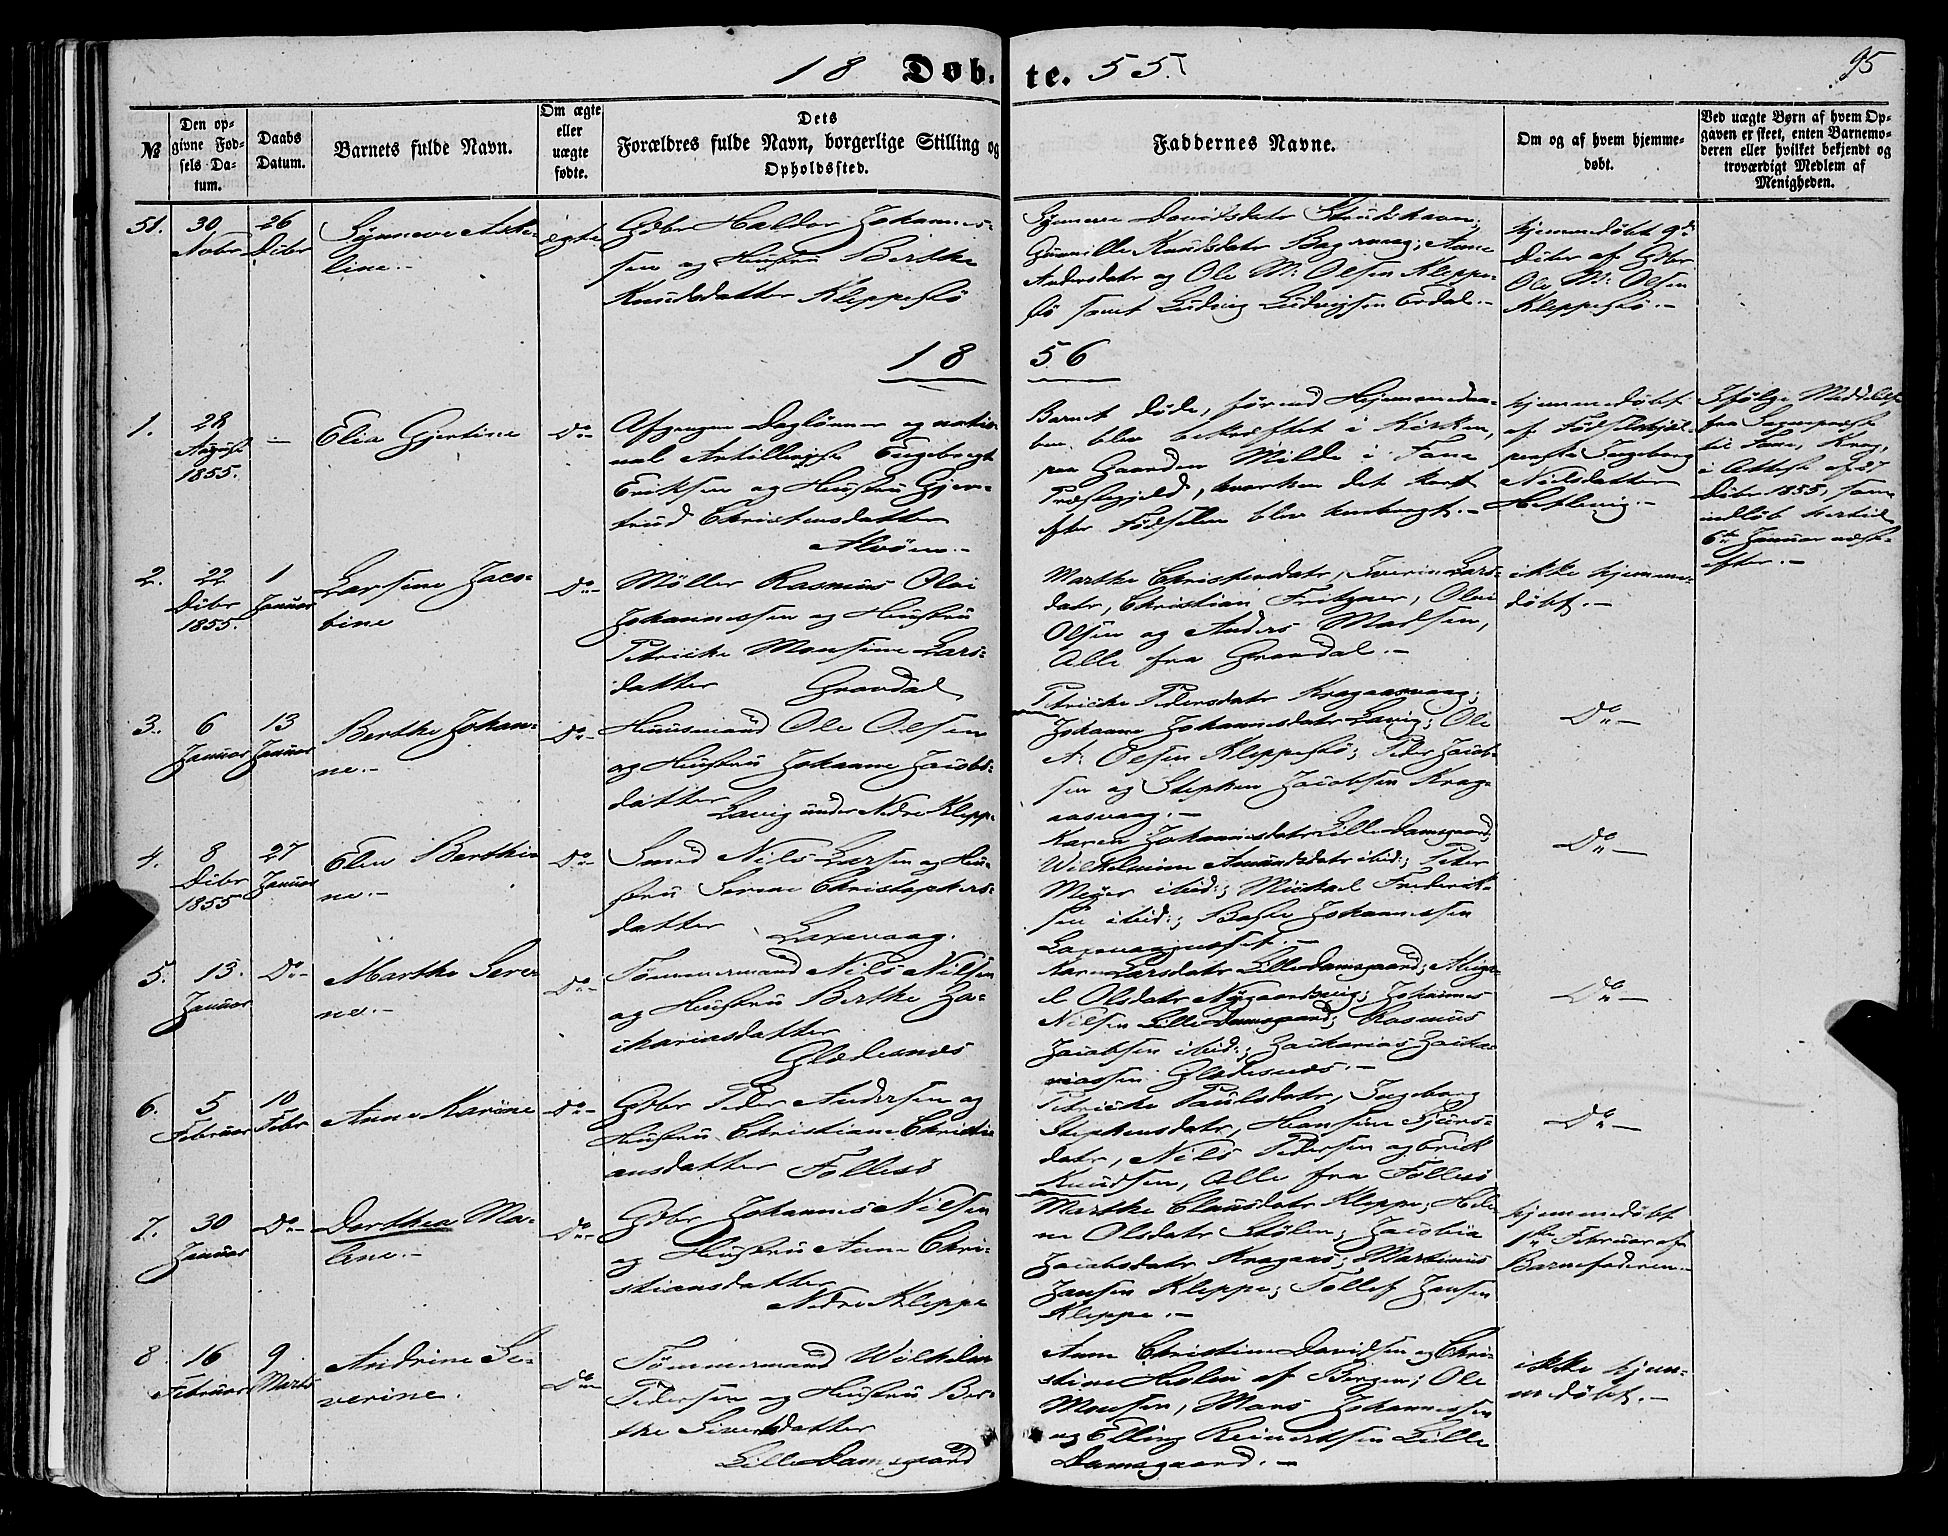 18 Døb- te. 55.
95
№
Den op-
givne Fød-
sels Da-
tum.
Daabs
Datum.
Barnets fulde Navn.
Om ægte
eller
uægte
fødte.
Dets
Forældres fulde Navn, borgerlige Stilling og
Opholdssted.
Faddernes Navne.
Om og af hvem hjemme-
døbt.
Ved uægte Børn af hvem Op-
gaven er skeet, enten Barnemo-
deren eller hvilket bekjendt og
troværdigt Medlem af
Menigheden.
51.
30
Novbr
26
Dcbr
Synneve Aske-
line.-
ægte
Gdbr Haldor Johannes-
sen og Hustru Berthe
Knudsdatter Kleppesö
Synneve Davidsdatr
Gunnille Knudsdatr
Andersdatr og Ole M: Olsen Kleppe-
sö samt Ludvig Ludvigsen Erdal.-
hjemmedöbt 9de
Dcbr af Gdbr
Ole M: Olsen
Kleppesö.-
18 56
1.
28
August
1855.
-
Elia Gjertine
Do-
Afgangen Daglönner og natio-
nal Artillerist Engebregt
Eriksen og Hustru Gjer-
trud Christensdatter
Alvöen.-
Barnet döde, förend Hjemmedaa-
ben blev bekræftet i Kirken,
paa Gaarden Milde i Fane
Præstegjeld, hvorhen det kort
efter Födselen blev henbragt.-
hjemmedöbt
af Födselshjæl-
perske Ingeborg
Nielsdatter
Hetlevig.-
Ifölge Meddelelse
fra Sognepræst
til Fane, Krag,
i Attest af 27
Dcbr 1855, som
indlöb hertil
6te Januar næst-
efter.-
2.
22
Dcbr
1855.
1
Januar
Larsine Jaco-
bine
Do-
Möller Rasmus Olai
Johannessen og Hustru
Petricke Monsine Lars-
datter Gravdal
Marthe Christensdatr, Sverin Lars-
datr, Christian Fritzner, Olai
Olsen og Anders Madsen,
Alle fra Gravdal.-
ikke hjemme-
döbt.-
3.
6
Januar
13
Januar
Berthe Johan-
ne.-
Do-
Huusmand Ole Olsen
og Hustru Johanne Jacobs-
datter
Lavig under Nedre Kleppe
Petricke Pedersdatr Kragaasvaag;
Johanne Johannesdatr Lavig; Ole
A: Olsen Kleppesö; Peder Jacob-
sen og Stephen Jacobsen Krag-
aasvaag.-
Do-
4.
8
Dcbr
1855
27
Januar
Elen Berthi-
ne.-
Do-
Smed Nils Larsen og Hu-
stru Serene Christophers-
datter Laxevaag.
Karen Johannesdatr Lille Damsgaard;
Wilhelmine Amundsdatr ibid:; Peter
Meyer ibid:; Michael Frederik-
sen ibid:; Johannessen
Laxevaagneset.-
Do-
5.
13.
Januar
Do-
Marthe Seve-
ne.-
Do-
Tömmermand Nils Nilsen
og Hustru Berthe Za-
chariasdatter
Gladesnæs
Karen Larsdatr Lille Damsgaard;
Olsdatr Nygaardsvig; Johannes
Nilsen Lille Damsgaard; Rasmus
Jacobsen ibid:; Zacharias Zacha-
riassen Gladesnæs.-
Do-
6.
5
Februar
10
Febr
Anne Karine
Do-
Gdbr Peder Andersen og
Hustru Christiane Christi-
ansdatter Follesö
Petricke Paulsdatr, Ingeborg
Stephensdatr, Hansine Sjurs-
datr, Nils Pedersen og Erik
Knudsen, Alle fra Follesö
Do-
7.
30
Januar
Do-
Dorthea Ma-
lene.-
Do-
Gdbr Johannes Nilsen
og Hustru Anne Chri-
stiansdatter
Nedre Kleppe
Marthe Clausdatr Kleppe; Hele-
ne Olsdatr Stölen; Jacobia
Jacobsdatr Kragaas; Martinus
Jansen Kleppe; Tollef Jansen
Kleppe.-
hjemmedöbt
1ste Februar af
Barnefaderen.-
8
16
Februar
9
Marts
Andrine Se-
verine.
Do-
Tömmermand Wilhelm
Pedersen og Hustru Ber-
the Sivertsdatter
Lille Damsgaard
Anne Christine Davidsen og Chri-
stine Holm af Bergen; Ole
Monsen, Mons Johannessen
og Elling Reinertsen Lille
Damsgaard.-
ikke hjem-
medöbt.-